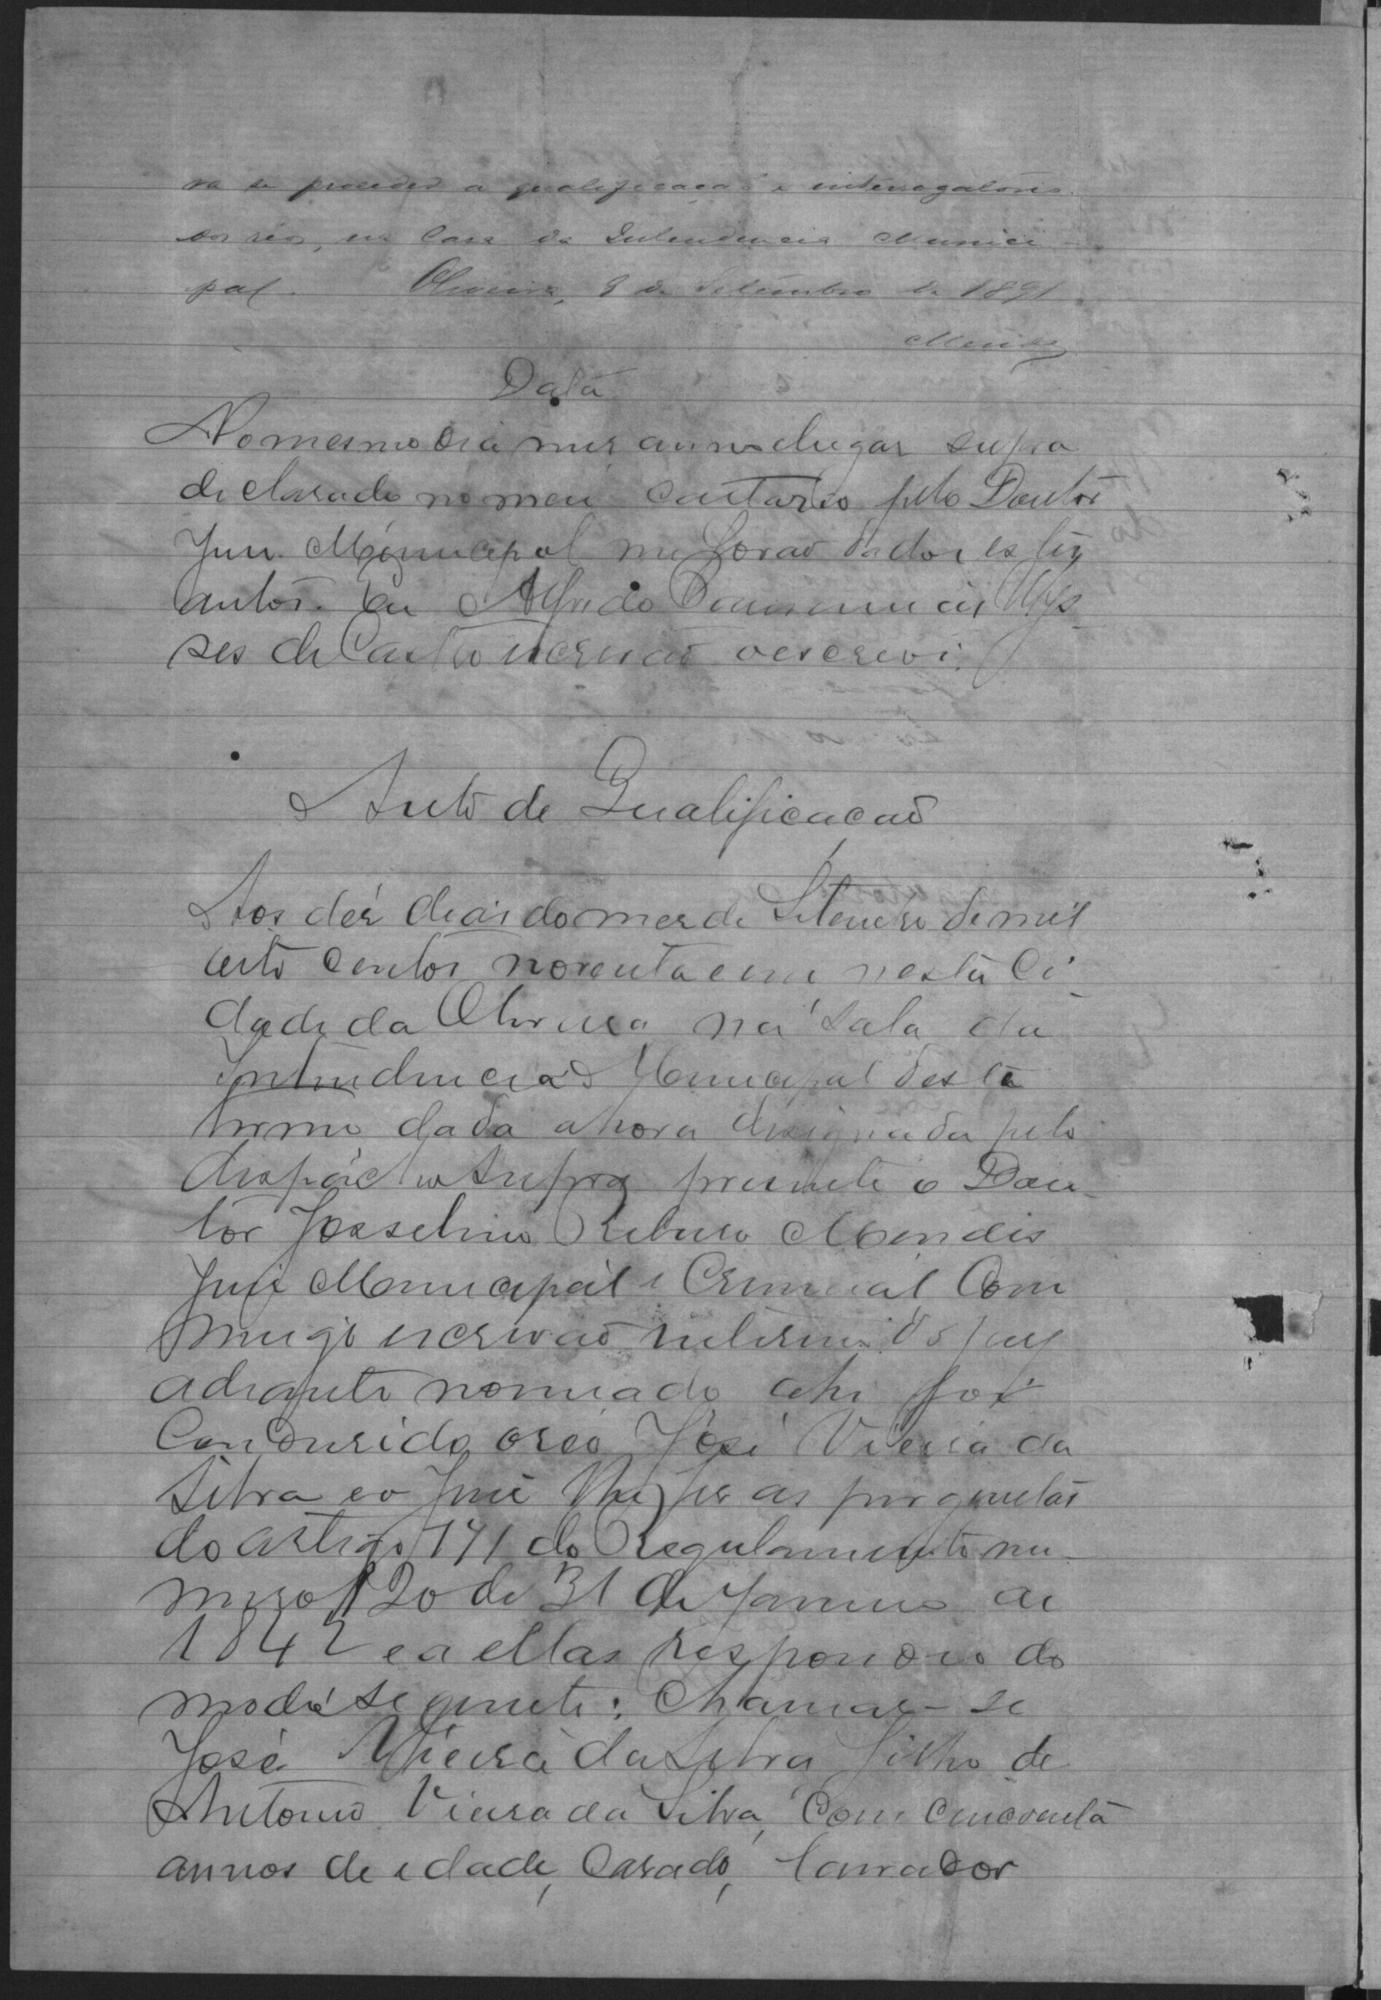 ra se proceder a qualificação e interrogatorio
dos réos, na Casa da Intendencia Munici-
pal. Oliveira, 9 de Setembro de 1891.
Mendes
Data
No mesmo dia mes anno e lugar supra
declarado no meu cartorio pelo Doutor
Juiz Municipal me forão dados estes
autos. Eu Alfredo Ulys-
ses de Castro escrivão o escrevi.
Auto de Qualificação
Aos déz dias do mez de Setembro de mil
oito centos noventa e um nesta Ci-
dade da Oliveira na sala da
Intendencia Municipal deste
termo dada a hora designada pelo
despacho supra presente o Dou-
tor Josselino Ribeiro Mendes
Juiz Municipal e Criminal Com
migo escrivão interino do jury
adiante nomeado ahi foi
Condusido o réo José Vieira da
Silva e o Juiz lhe fez as preguntas
do artigo 171 do Regulamento nu-
mero 120 de 31 de Janeiro de
1842 e a ellas respondeo do
modo seguente: Chamar-se
José Vieira da Silva filho de
Antonio Vieira da Silva, Com cincoenta
annos de idade, Casado, lavrador